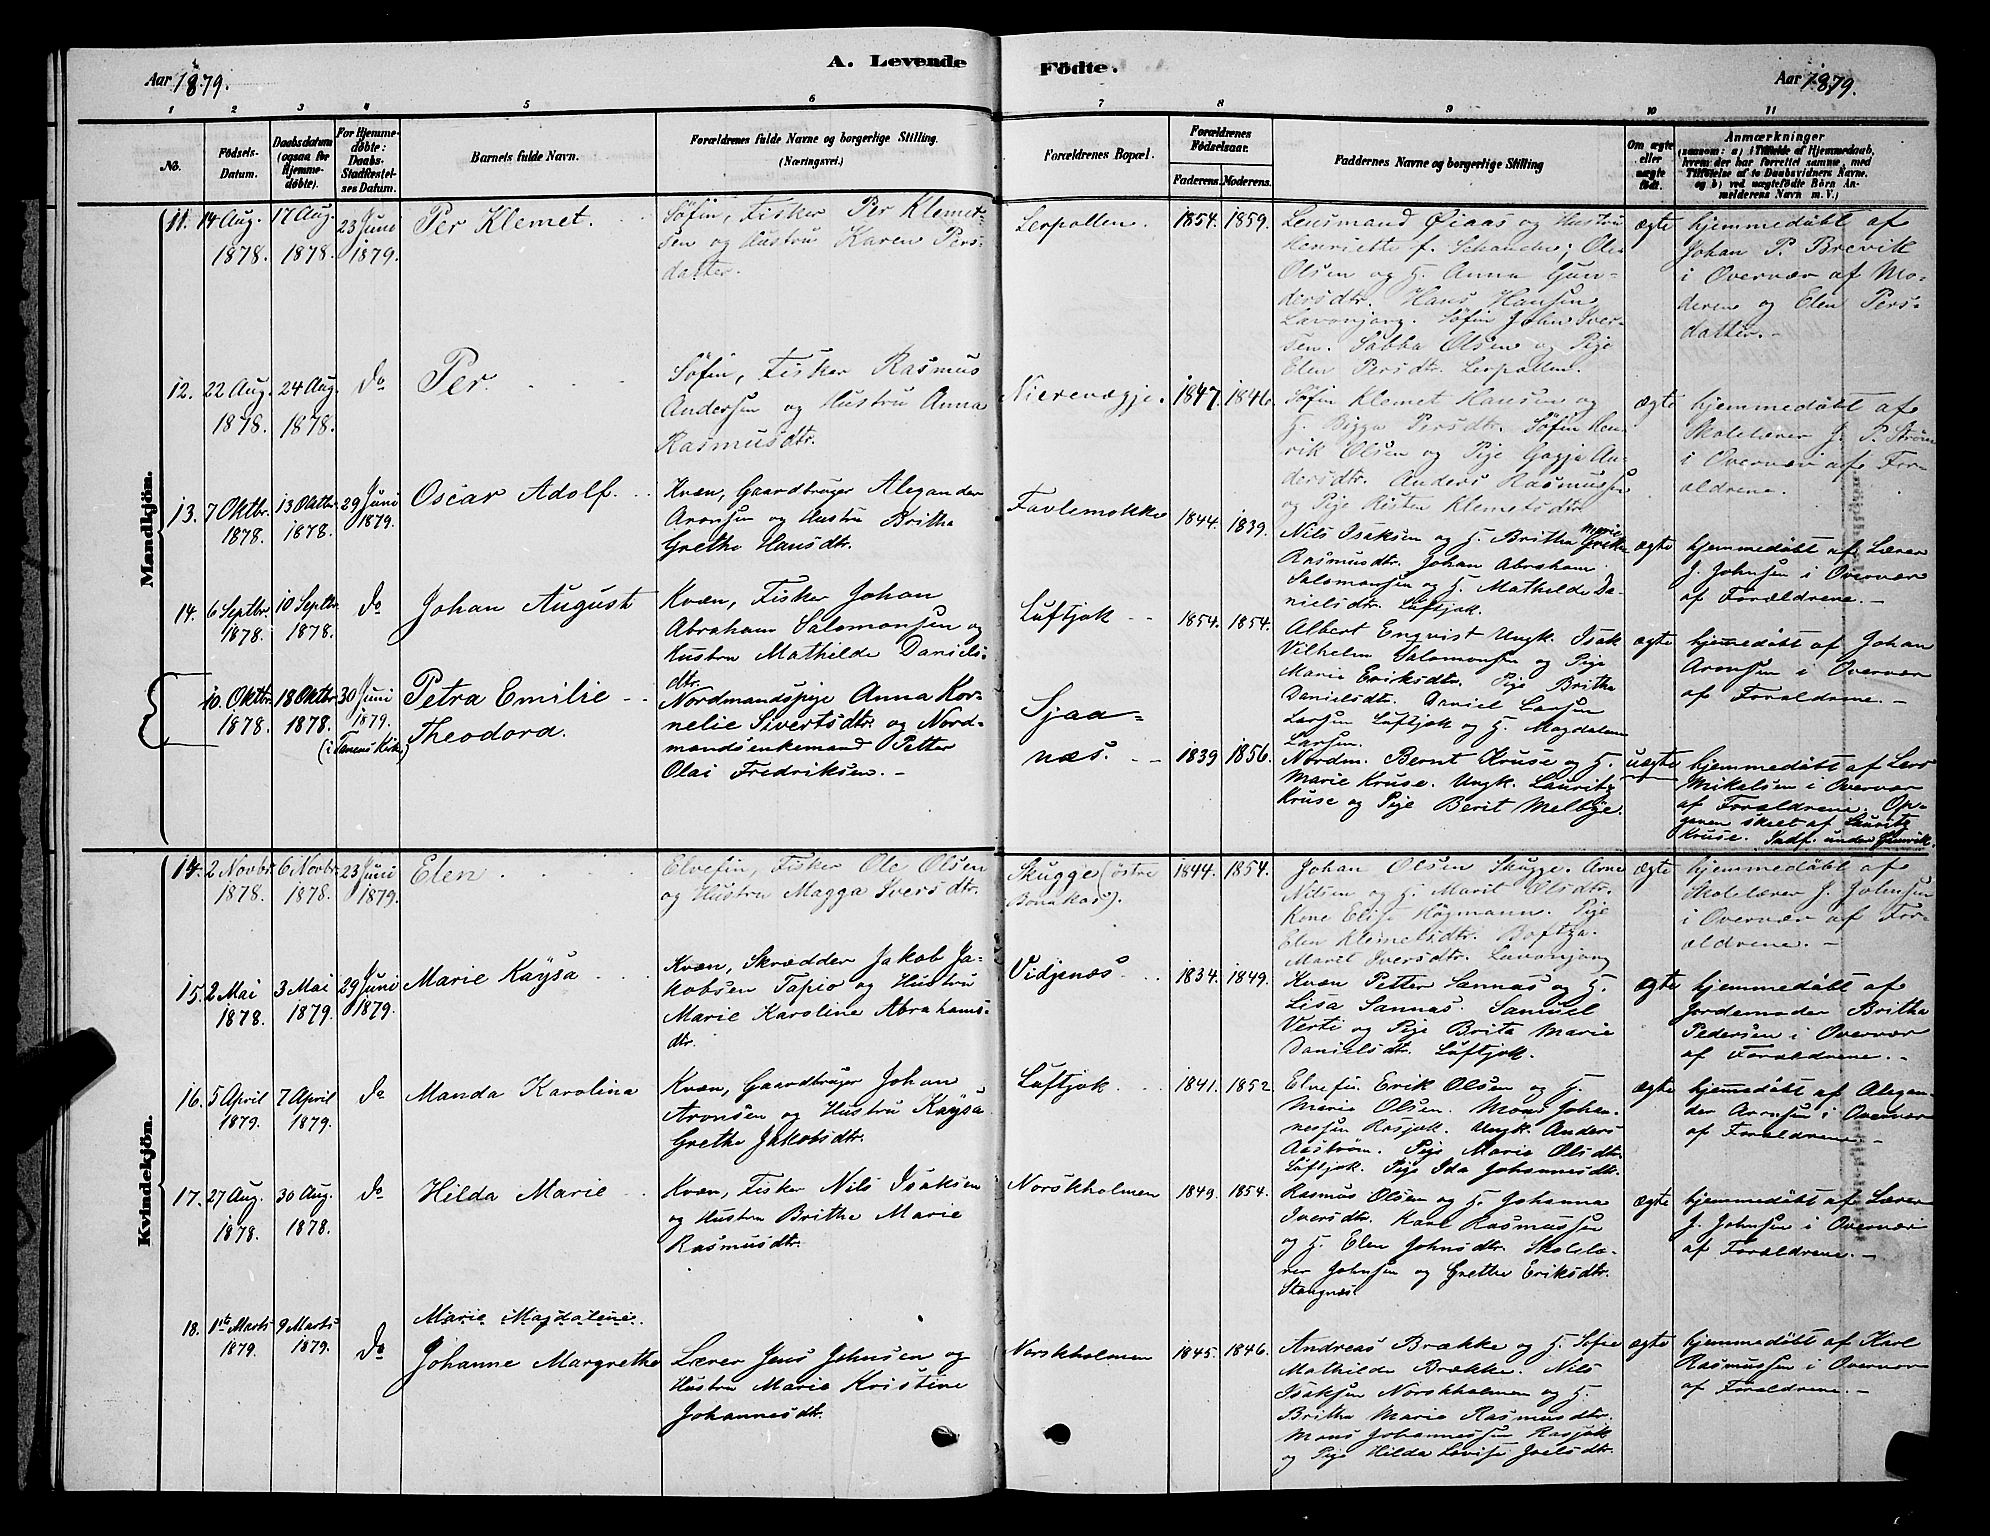 Aar 1879.
A. Levende Fødte.
Aar 1879.
1 2 3 4 5 6 7 8 9 10 11
No.
Fødsels-Datum.
Daabsdatum (ogsaa for Hjemme-døbte).
For Hjemme-døbte: Daabs-Stadfæstelses Datum.
Barnets fulde Navn.
Forældrenes fulde Navne og borgerlige Stilling. (Næringsvei.)
Forældrenes Bopæl.
Forældrenes Fødselsaar.
Faderens. Moderens.
Faddernes Navne og borgerlige Stilling
Om ægte eller uægte født.
Anmærkninger
(saasom: a) i Tilfælde af Hjemmedaab, hvem der har forrettet samme, med Tilføielse af to Daabsvidners Navne, og b) ved uægtefødte Børn Anmelderens Navn m. V.)
Mandkjön.
11. 14 Aug. 1878. 17 Aug. 1878. 23 Juni 1879.
Per Klemet.
Søfin, Fisker Per Klemet-
sen og Hustru Karen Pers-
datter.
Lerpollen. 1854. 1859.
Lensmand Øiaas og Hustru
Henriette f. Schanche; Ole
Olsen og H. Anna Gun-
dersdtr. Hans Hansen,
Lavonjorg. Søfin John Iver-
sen. Sabba Olsen og Pige
Elen Persdtr. Lerpollen.
ægte
hjemmedøbt af
Johan P. Brevik
i Overvær af Mo-
deren og Elen Pers-
datter.-
12. 22 Aug. 1878. 24 Aug. 1878. do
Per.
Søfin, Fisker Rasmus
Andersen og Hustru Anna
Rasmusdtr.
Nierevægje. 1847. 1846.
Søfin Klemet Hansen og
H. Bigga Persdtr. Søfin Hen-
rik Olsen og Pige Gagja An-
dersdtr. Anders Rasmussen
og Pige Risten Klemetsdtr
ægte
hjemmedøbt af
Skolelærer J. P. Strøm
i Overvær af For-
ældrene.
13. 7 Oktbr. 1878. 13 Oktbr. 1878. 29 Juni 1879.
Oscar Adolf.
Kvæn, Gaardbruger Alexander
Aronsen og Hustru Britha
Grethe Hansdtr.
Favlemokke 1844. 1839.
Nils Isaksen og H. Britha Marie
Rasmusdtr. Johan Abraham
Salomonsen og H. Mathilde Da-
nielsdtr. Luftjok.
ægte
hjemmedøbt af Lærer
J. Johnsen i Overvær
af Forældrene.-
14. 6 Septbr. 1878. 10 Septbr. 1878. do
Johan August
Kvæn, Fisker Johan
Abraham Salomonsen og
Hustru Mathilde Daniels-
dtr.
Luftjok 1854. 1854.
Albert Enqvist Ungk. Isak
Vilhelm Salomonsen og Pige
Marie Eriksdtr. Pige Britha
Danielsdtr. Daniel Larsen
Larsen Luftjok og H. Magdalena
Larsen.
ægte
hjemmedøbt af Johan
Aronsen i Overvær
af Forældrene.-
10. Oktbr. 1878. 18 Oktbr. 1878. 30 Juni 1879. (i Tanens Kirke)
Petra Emilie
Theodora.
Nordmandspige Anna Kor-
nelie Sivertsdtr. og Nord-
mandsenkemand Petter
Olai Fredriksen.-
Sjaa-
næs. 1839 1856.
Nordm. Bernt Kruse og H.
Marie Kruse. Ungk. Lauritz
Kruse og Pige Berit Melbye.
uægte
hjemmedøbt af Lars
Mikalsen i Overvær
af Forældrene. Op-
gaven skeet af Lauritz
Kruse. Indf. under Qvindk.
Kvindekjön.
14. 2 Novbr. 1878. 6 Novbr. 1878. 23 Juni 1879.
Elen
Elvefin, Fisker Ole Olsen
og Hustru Magga Iversdtr.
Skugge (østre
Bonakas). 1844. 1854.
Johan Olsen Skugge. Arne
Nilsen og H. Marit Olsdtr.
Kone Elise Høgmann. Pige
Elen Klemetsdtr. Boftza.
Marit Iversdtr. Lavonjorg
ægte
hjemmedøbt af
Skolelærer J. Johnsen
i Overvær af For-
ældrene.-
15. 2 Mai 1878. 3 Mai 1879. 29 Juni 1879.
Marie Kaysa
Kvæn, Skrædder Jakob Ja-
kobsen Tapio og Hustru
Marie Karoline Abrahams-
dtr.
Vidjenæs 1834. 1849.
Kvæn Petter Sannas og H.
Lisa Sannas. Samuel
Verti og Pige Brita Marie
Danielsdtr. Luftjok.
ægte
hjemmedøbt af
Jordemoder Britha
Pedersen i Overvær
af Forældrene.-
16. 5 April 1879. 7 April 1879. do
Manda Karolina
Kvæn, Gaardbruger Johan
Aronsen og Hustru Kaysa
Grethe Jakobsdtr.
Luftjok 1841. 1852
Elvefin Erik Olsen og H.
Marie Olsen. Mons Johan-
nessen Rasjok. Ungk. Anders
Aastrøm. Pige Marie Olsdtr.
Luftjok. Pige Ida Johannesdtr.
ægte
hjemmedøbt af Alexan-
der Aronsen i Overvær
af Forældrene.-
17. 27 Aug. 1878. 30 Aug. 1878. do
Hilda Marie
Kvæn, Fisker Nils Isaksen
og Hustru Britha Marie
Rasmusdtr.
Norskholmen 1849. 1854.
Rasmus Olsen og H. Johanna
Iversdtr. Karl Rasmussen
og H. Elen Johnsdtr. Skolelæ-
rer Johnsen og Grethe Eriksdtr.
Stangnæs
ægte
hjemmedøbt af Lærer
J. Johnsen i Overvær
af Forældrene.-
18. 1ste Marts 1879. 9 Marts 1879. do
Marie Magdalene.
Johanne Margrethe
Lærer Jens Johnsen og
Hustru Marie Kristine
Johannesdtr.
Norskholmen 1845. 1846.
Andreas Brække og H. Sofie
Mathilde Brække. Nils
Isaksen Norskholmen og H.
Britha Marie Rasmusdtr.
Mons Johannessen Rasjok
og Pige Hilda Lovise Joelsdtr.
ægte
hjemmedøbt af Karl
Rasmussen i Overvær
af Forældrene.-